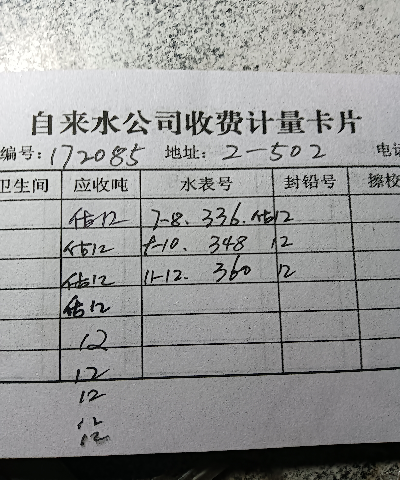 自来水公司收费计量卡片
编号: 172085 地址: 2-502 电话
卫生间 应收吨 水表号 封铅号 擦校
估12 7-8. 336. 估12
估12 9-10. 348 12
估12 11-12. 360 12
估12
12
12
12
12